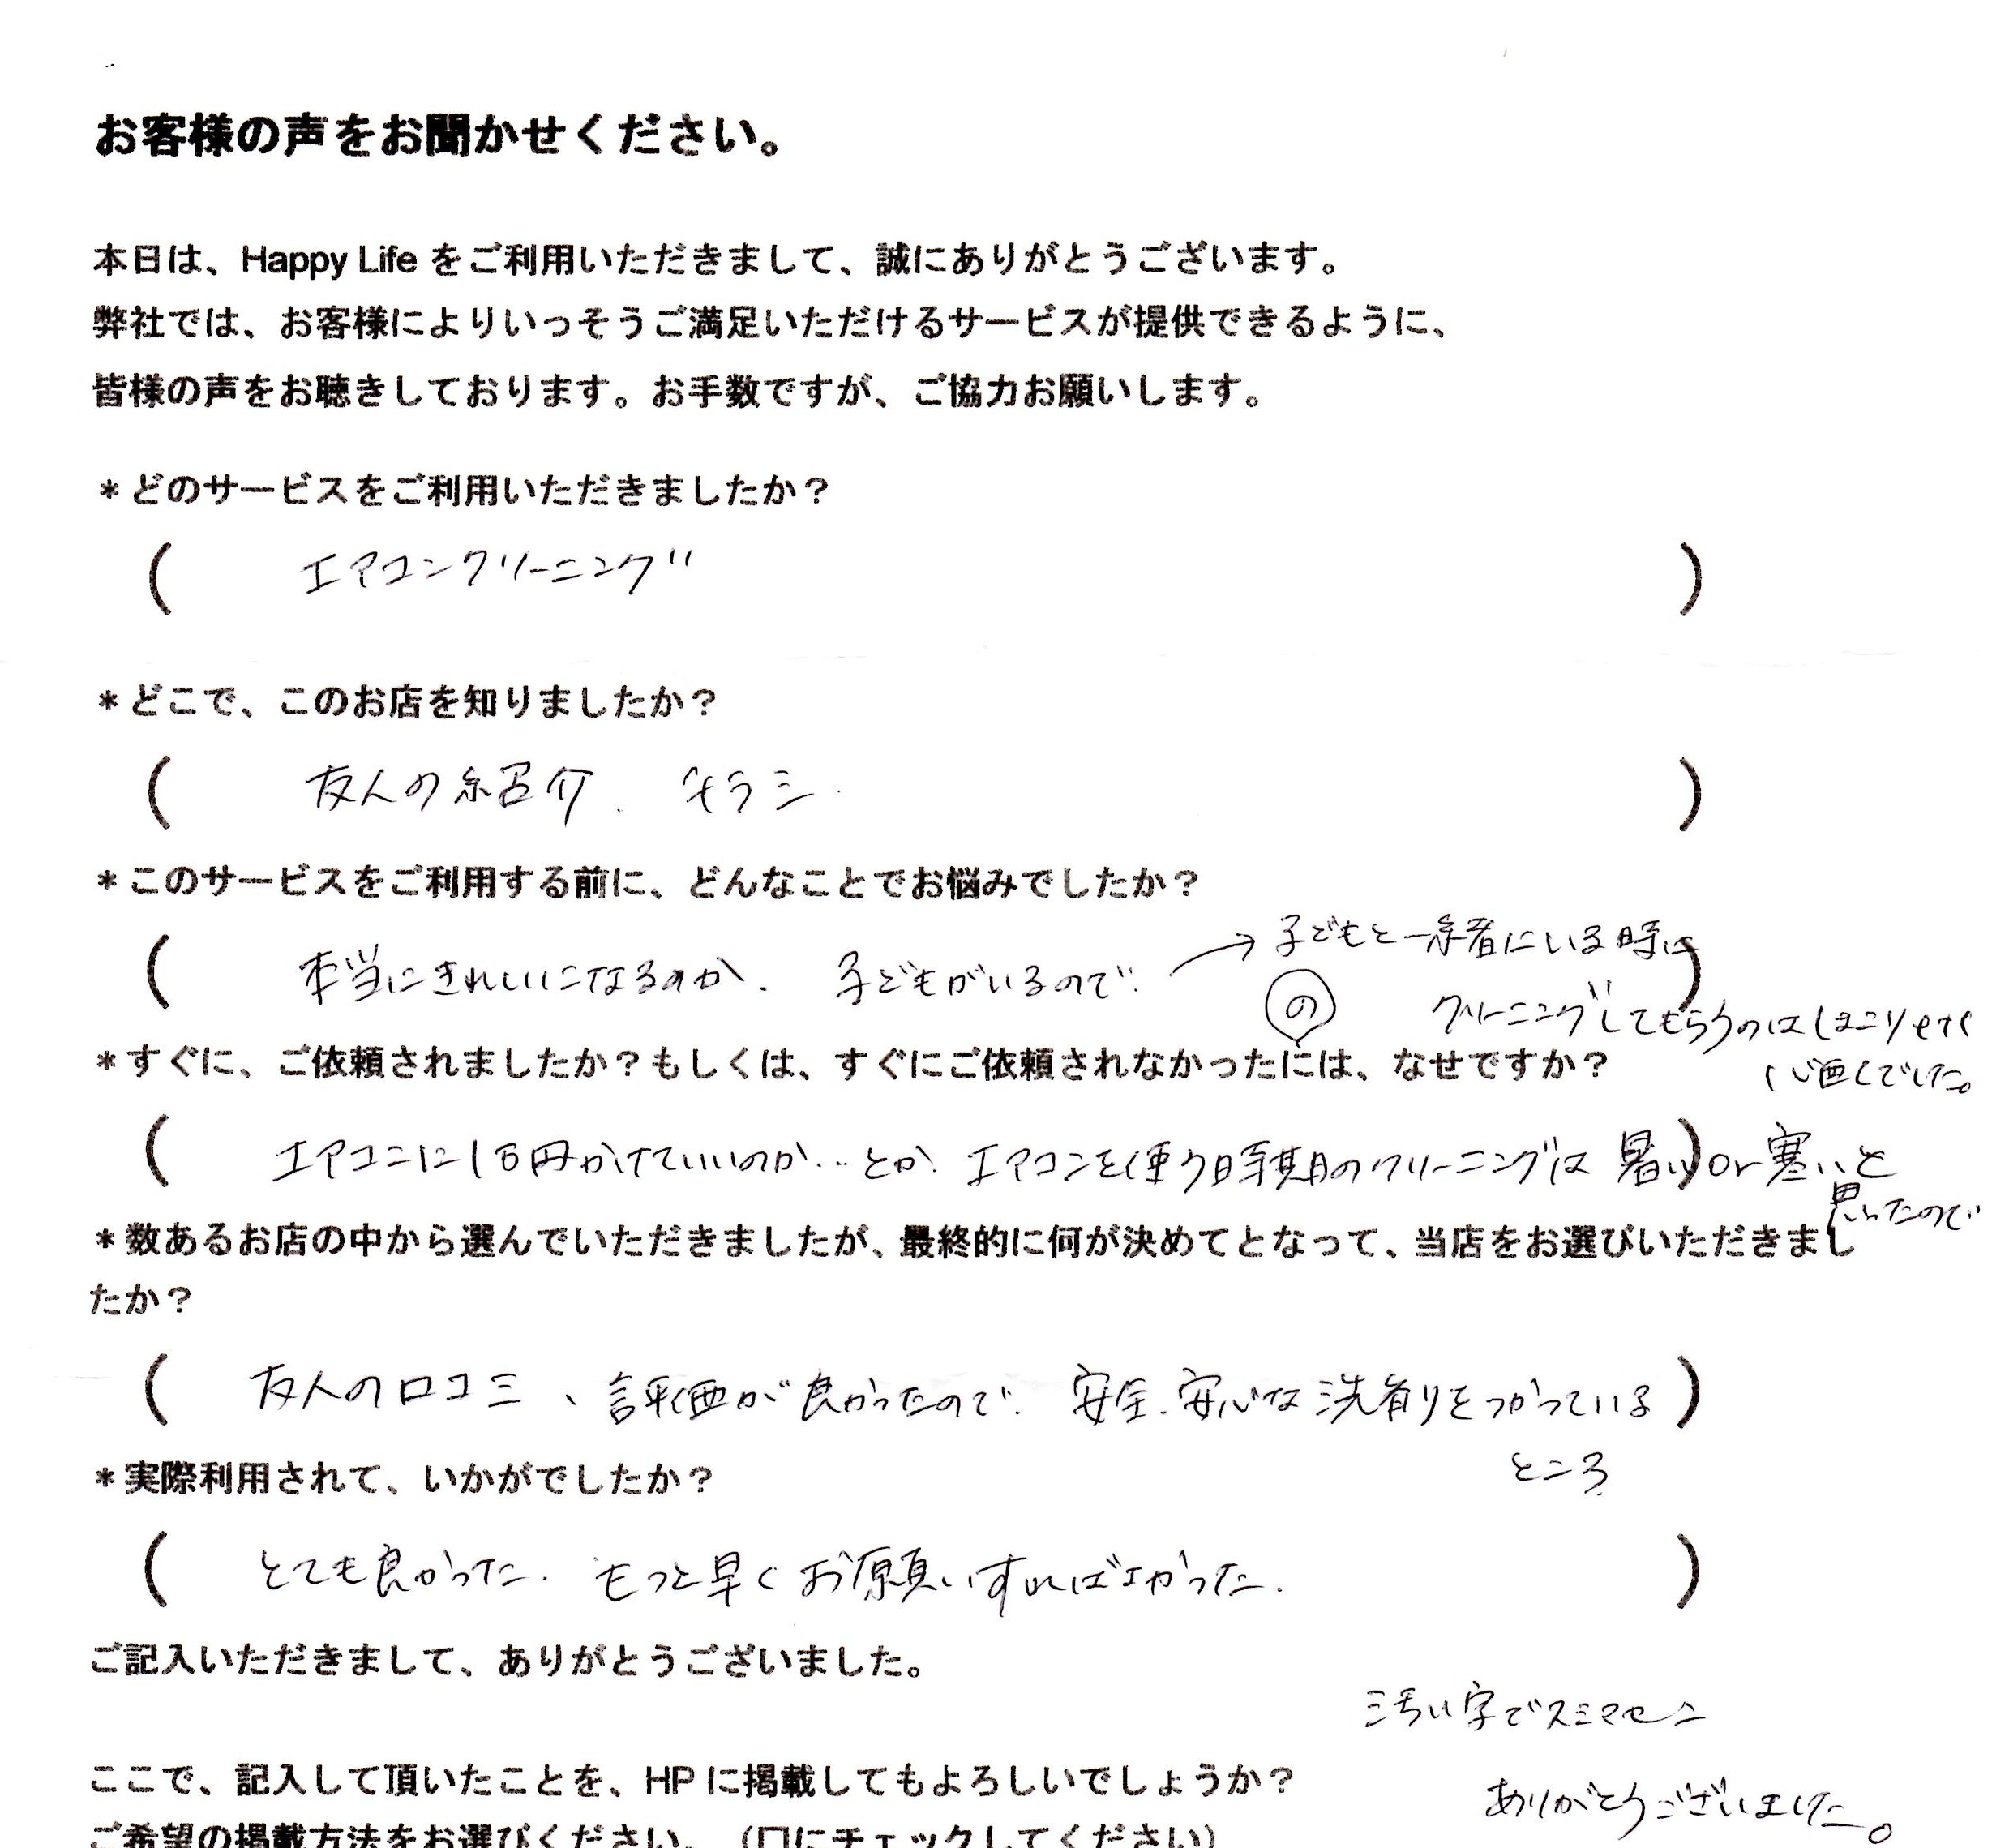 お客様の声をお聞かせください。
本日は、Happy Life をご利用いただきまして、誠にありがとうございます。
弊社では、お客様によりいっそうご満足いただけるサービスが提供できるように、
皆様の声をお聴きしております。お手数ですが、ご協力お願いします。
*どのサービスをご利用いただきましたか？
( エアコンクリーニング )
*どこで、このお店を知りましたか？
( 友人の紹介. チラシ. )
*このサービスをご利用する前に、どんなことでお悩みでしたか？
( 本当にきれいになるのか. 子どもがいるので. → 子どもと一緒にいる時に )
の クリーニングしてもらうのは
心配でした。
*すぐに、ご依頼されましたか？もしくは、すぐにご依頼されなかったには、なせですか？
( エアコンに1万円かけていいのか…とか. エアコンを使う時期のクリーニングは 暑い) or 寒いと
思ったので
*数あるお店の中から選んでいただきましたが、最終的に何が決めてとなって、当店をお選びいただきまし
たか？
( 友人の口コミ、評価が良かったので. 安全.安心な洗剤をつかっている )
ところ
*実際利用されて、いかがでしたか？
( とても良かった. もっと早くお願いすればよかった. )
ご記入いただきまして、ありがとうございました。
汚い字でスミマセン
ここで、記入して頂いたことを、HP に掲載してもよろしいでしょうか？
ありがとうございました。
ご希望の掲載方法をお選びください。（口にチェックしてください）